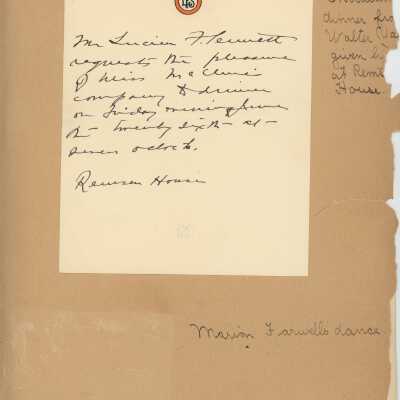 Mr Lucien F. Sennett
requests the pleasure
of Miss McClure's
company to dinner
on Friday evening June
the twenty sixth at
seven o'clock.
Remsen House
dinner fro
Walter
given
at Rem
House.
Marion Farwell's dance